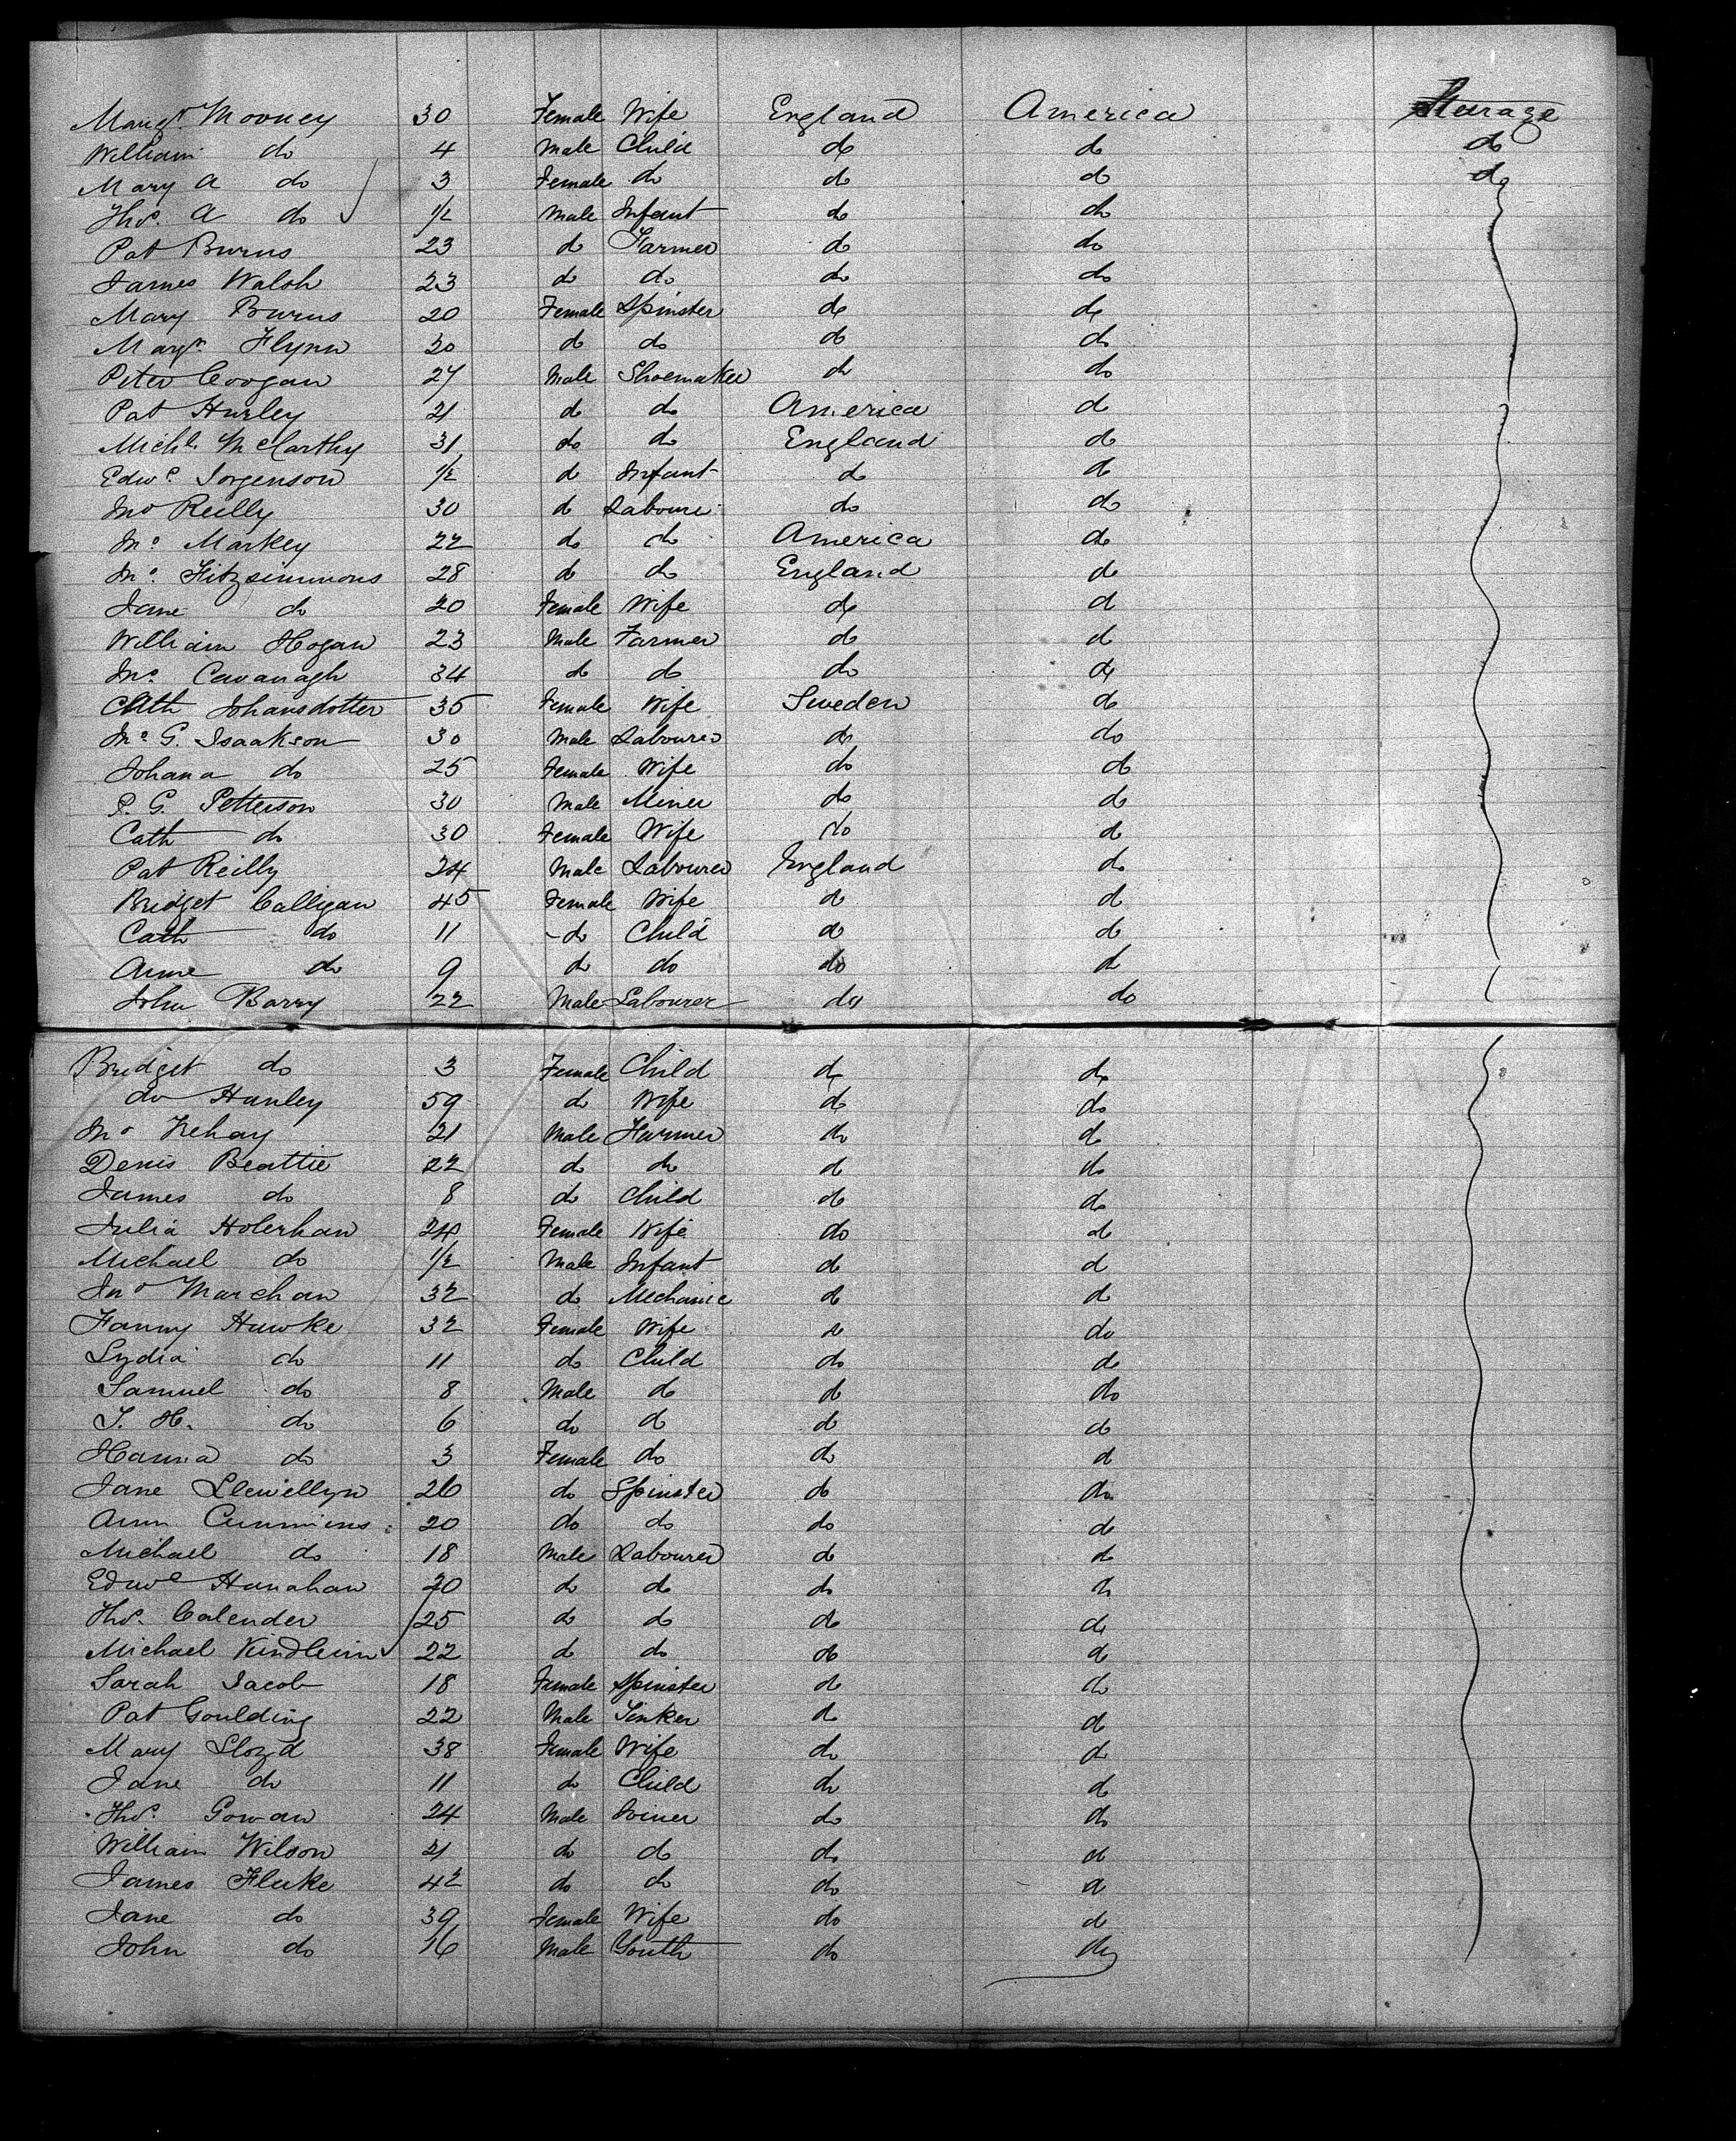 Margt. Mooney 30 Female Wife England America Steerage
William do 4 Male Child do do do
Mary A do 3 Female do do do do
Thos. A do 1/2 Male Infant do do
Pat Burns 23 do Farmer do do
James Walsh 23 do do do do
Mary Burns 20 Female Spinster do do
Margt. Flynn 20 do do do do
Peter Coogan 27 Male Shoemaker do do
Pat Hurley 21 do do America do
Michl. McCarthy 31 do do England do
Edwd. Jorgenson 1/2 do Infant do do
Jno Reilly 30 do Labourer do do
Jno. Markey 22 do do America do
Jno. Fitzsimmons 28 do do England do
Jane do 20 Female Wife do do
William Hogan 23 Male Farmer do do
Jno. Cavanagh 34 do do do do
Cath Johansdotter 35 Female Wife Sweden do
Jno. G. Isaakson 30 Male Labourer do do
Johana do 25 Female Wife do do
P. G. Petterson 30 Male Miner do do
Cath do 30 Female Wife do do
Pat Reilly 24 Male Labourer England do
Bridget Calligan 45 Female Wife do do
Cath do 11 do Child do do
Anne do 9 do do do do
John Barry 22 Male Labourer do do
Bridget do 3 Female Child do do
do Hanley 59 do Wife do do
Jno 21 Male Farmer do do
Denis Beattie 22 do do do do
James do 8 do Child do do
Julia Holerhan 24 Female Wife do do
Michael do 1/2 Male Infant do do
Jno Marchan 32 do Mechanic do do
Fanny Hawke 32 Female Wife do do
Lydia do 11 do Child do do
Samuel do 8 Male do do do
T. H. do 6 do do do do
Hanna do 3 Female do do do
Jane Llewellyn 26 do Spinster do do
Ann Cummins 20 do do do do
Michael do 18 Male Labourer do do
Edwd Hanahan 20 do do do do
Thos. Calender 25 do do do do
Michael 22 do do do do
Sarah Jacob 18 Female Spinster do do
Pat Goulding 22 Male Tinker do do
Mary Lloyd 38 Female Wife do do
Jane do 11 do Child do do
Thos. Gowan 24 Male Joiner do do
William Wilson 21 do do do do
James Fluke 42 do do do do
Jane do 39 Female Wife do do
John do 16 Male Youth do do